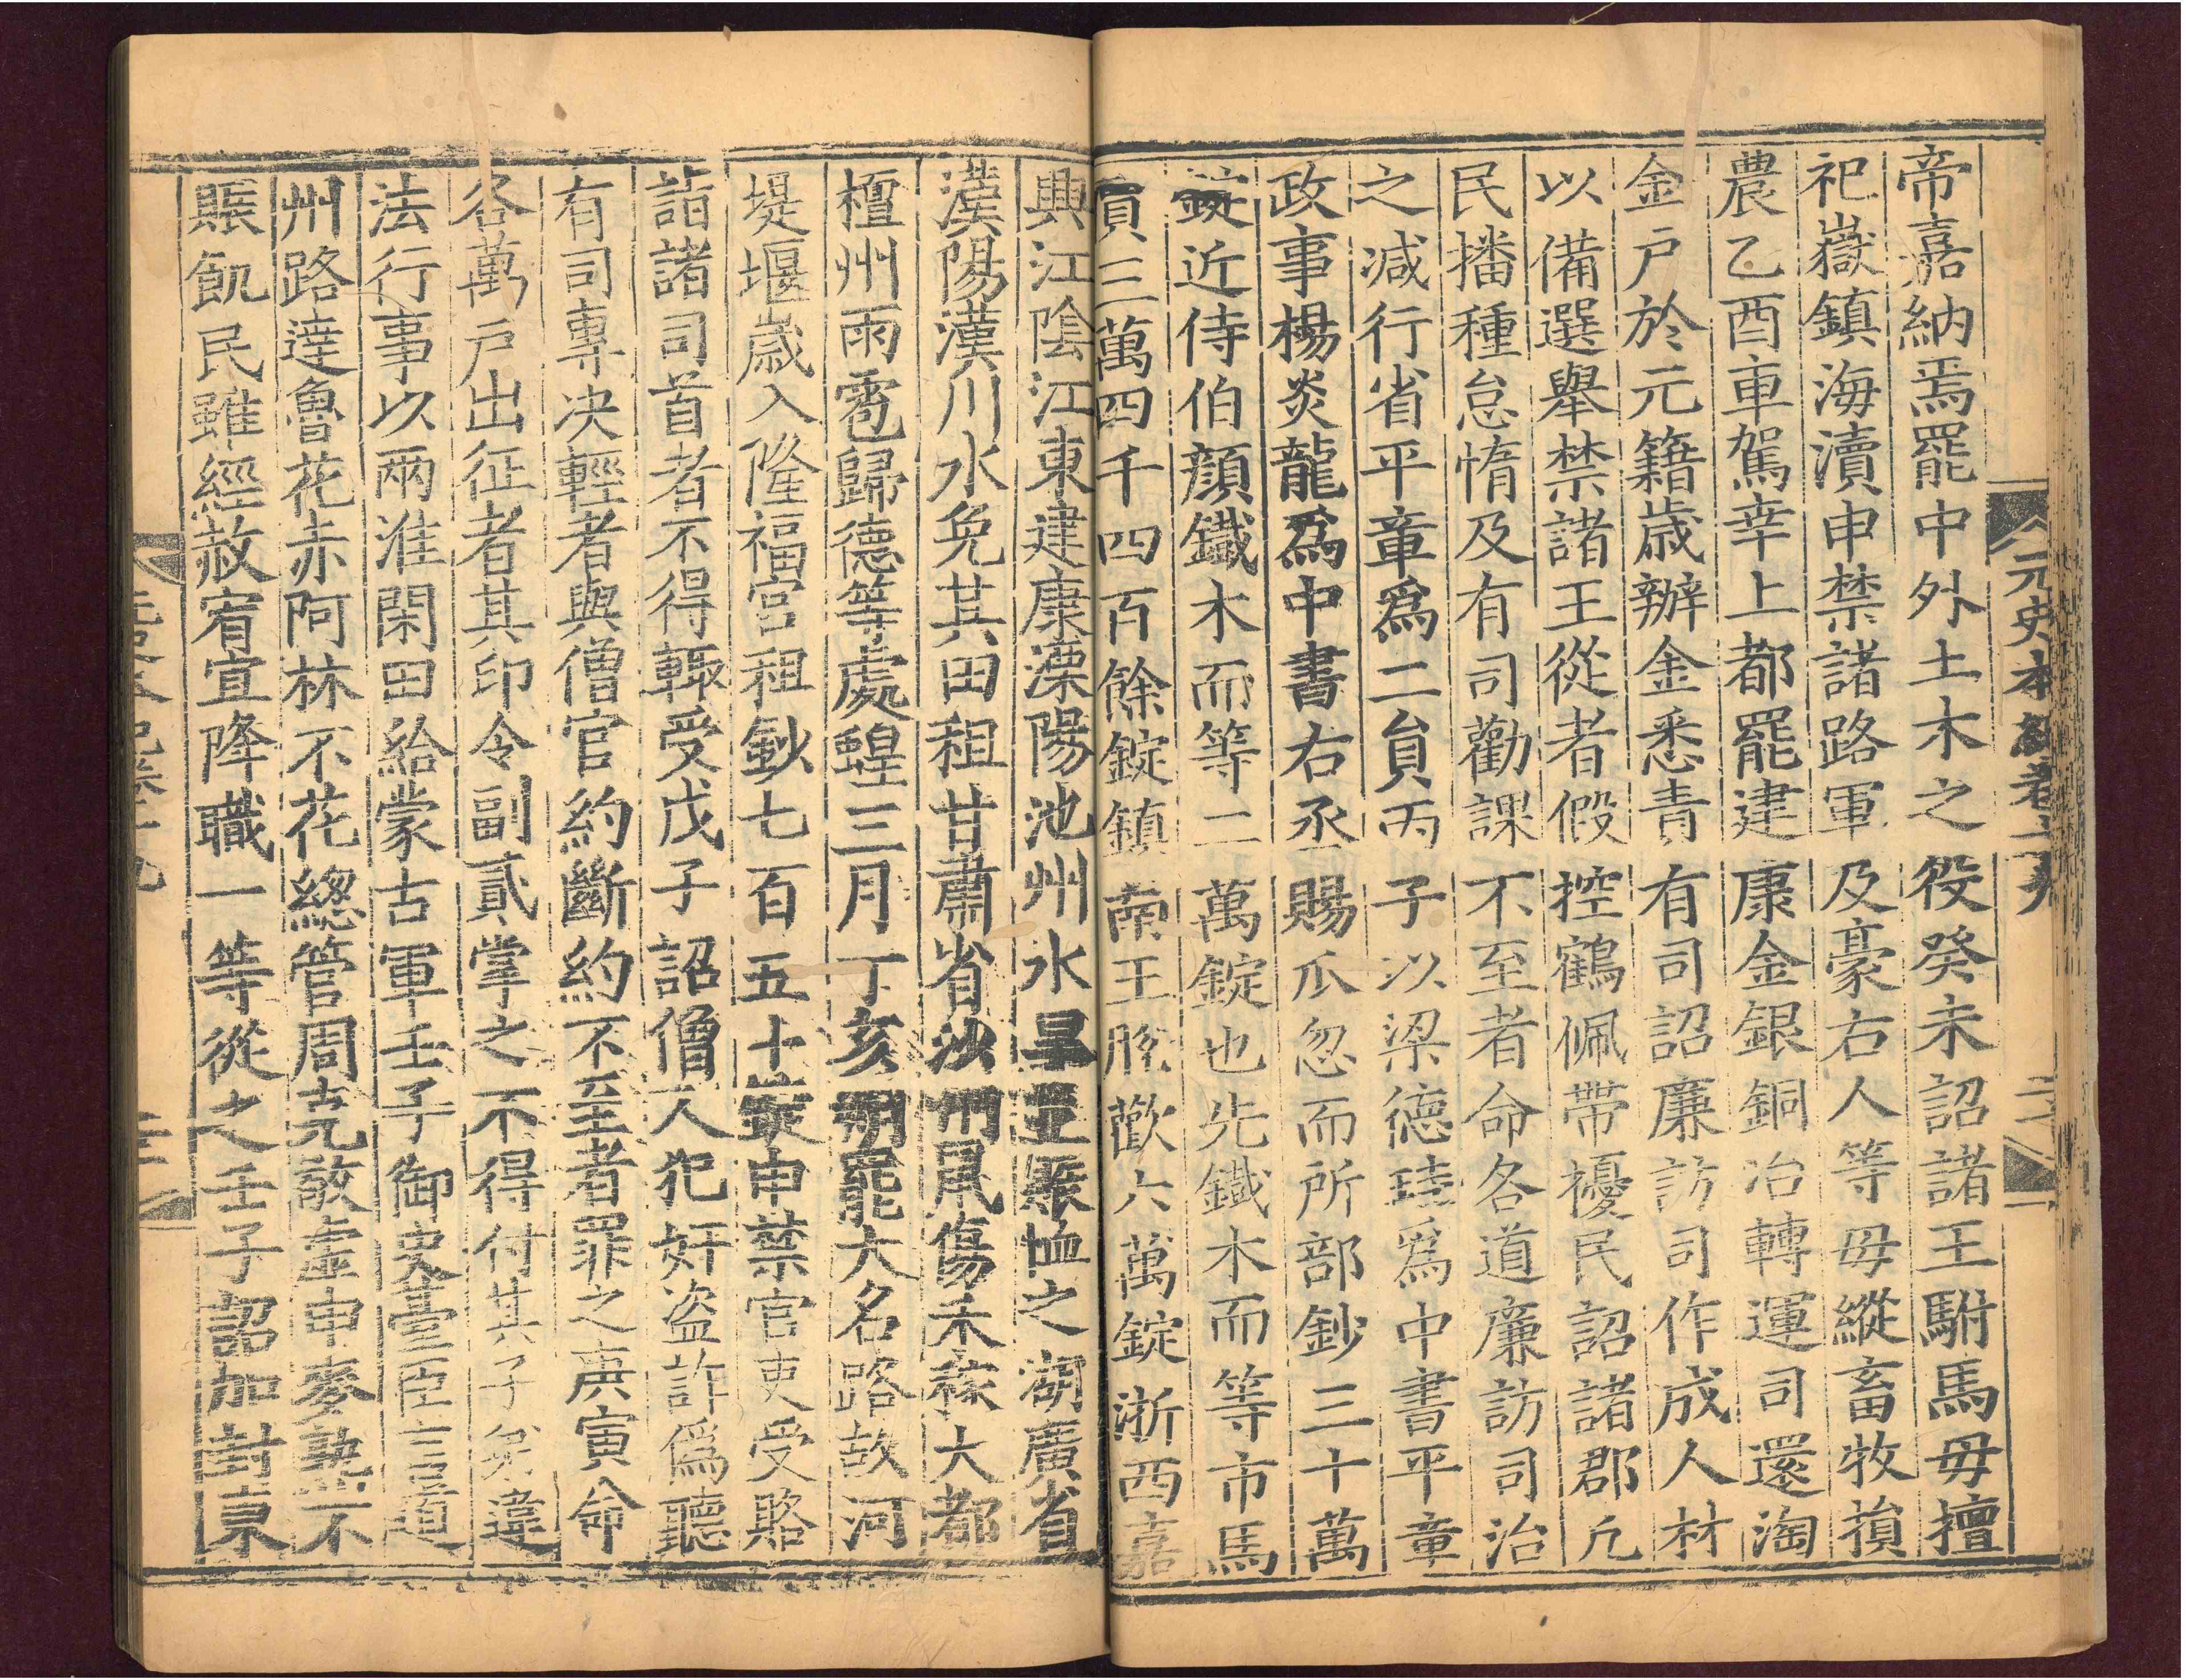 元史本紀卷十九
二
帝嘉納焉罷中外土木之役癸未詔諸王駙馬毋擅
祀嶽鎮海瀆申禁諸路軍及豪右人等毋縱畜牧損
農乙酉車駕幸上都罷建康金銀銅冶轉運司還淘
金戶於元籍歲辦金悉責有司詔廉訪司作成人材
以備選舉禁諸王從者假控鶴佩帶擾民詔諸郡凡
民播種怠惰及有司勸課不至者命各道廉訪司治
之减行省平章爲二貟丙子以梁德珪爲中書平章
政事楊炎龍爲中書右丞賜瓜忽而所部鈔三十萬
錠近侍伯顔鐵木而等二萬錠也先鐵木而等市馬
價三萬四千四百餘錠鎮南王脫歡六萬錠浙西嘉
興江陰江東建康溧陽池州水旱並賑恤之湖廣省
漢陽漢川水免其田租甘肅省沙州鼠傷禾稼大都
檀州雨雹歸德等處蝗三月丁亥朔罷大名路故河
堤堰歲入隆福宮租鈔七百五十錠申禁官吏受賂
詣諸司首者不得輒受戊子詔僧人犯奸盜詐僞聽
有司專决輕者與僧官約斷約不至者罪之庚寅命
各萬戶出征者其印令副貳掌之不得付其子弟違
法行事以兩淮閑田給蒙古軍壬子御史臺臣言道
州路達魯花赤阿林不花總管周克敬虛申麥熟不
賑飢民雖經赦宥宜降職一等從之壬子詔加封東